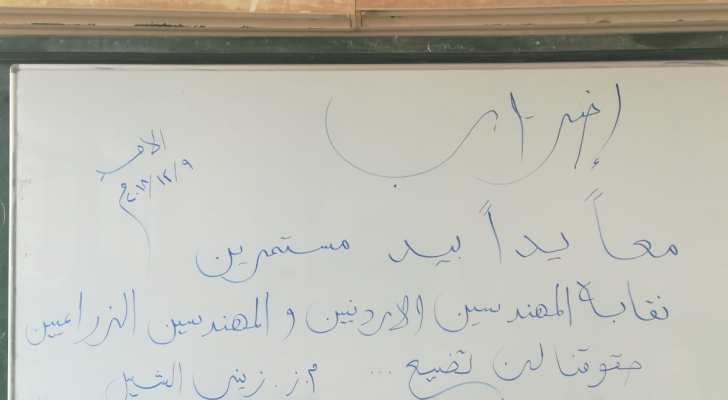 إضراب
الأحد
٢٠١٨/١٢/٩م
معاً يداً بيد مستمرين
نقابة المهندسين الاردنيين و المهندسين الزراعيين
حقوقنا لن تضيع ... م.ز. زيني الشبل